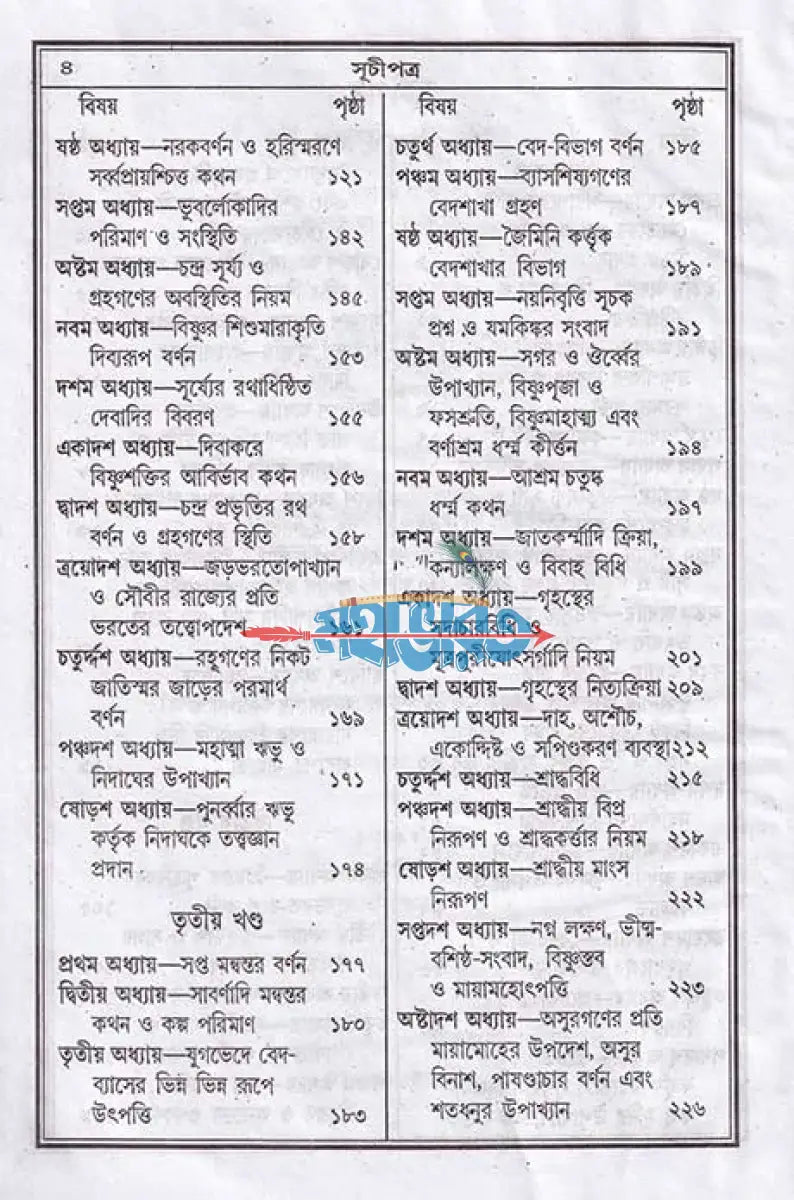 ৪
সূচীপত্র
বিষয় পৃষ্ঠা
ষষ্ঠ অধ্যায়—নরকবর্ণন ও হরিস্মরণে
সর্ব্বপ্রায়শ্চিত্ত কথন ১২১
সপ্তম অধ্যায়—ভুবর্লোকাদির
পরিমাণ ও সংস্থিতি ১৪২
অষ্টম অধ্যায়—চন্দ্র সূর্য্য ও
গ্রহগণের অবস্থিতির নিয়ম ১৪৫
নবম অধ্যায়—বিষ্ণুর শিশুমারাকৃতি
দিব্যরূপ বর্ণন ১৫৩
দশম অধ্যায়—সূর্য্যের রথাধিষ্ঠিত
দেবাদির বিবরণ ১৫৫
একাদশ অধ্যায়—দিবাকরে
বিষ্ণুশক্তির আবির্ভাব কথন ১৫৬
দ্বাদশ অধ্যায়—চন্দ্র প্রভৃতির রথ
বর্ণন ও গ্রহগণের স্থিতি ১৫৮
ত্রয়োদশ অধ্যায়—জড়ভরতোপাখ্যান
ও সৌবীর রাজ্যের প্রতি
ভরতের তত্ত্বোপদেশ
চতুর্দ্দশ অধ্যায়—রহূগণের নিকট
জাতিস্মর জাড়ের পরমার্থ
বর্ণন ১৬৯
পঞ্চদশ অধ্যায়—মহাত্মা ঋভু ও
নিদাঘের উপাখ্যান ১৭১
ষোড়শ অধ্যায়—পুনর্ব্বার ঋভু
কর্তৃক নিদাঘকে তত্ত্বজ্ঞান
প্রদান ১৭৪
তৃতীয় খণ্ড
প্রথম অধ্যায়—সপ্ত মন্বন্তর বর্ণন ১৭৭
দ্বিতীয় অধ্যায়—সাবর্ণাদি মন্বন্তর
কথন ও কল্প পরিমাণ ১৮০
তৃতীয় অধ্যায়—যুগভেদে বেদ-
ব্যাসের ভিন্ন ভিন্ন রূপে
উৎপত্তি ১৮৩
বিষয় পৃষ্ঠা
চতুর্থ অধ্যায়—বেদ-বিভাগ বর্ণন ১৮৫
পঞ্চম অধ্যায়—ব্যাসশিষ্যগণের
বেদশাখা গ্রহণ ১৮৭
ষষ্ঠ অধ্যায়—জৈমিনি কর্ত্তৃক
বেদশাখার বিভাগ ১৮৯
সপ্তম অধ্যায়—নয়নিবৃত্তি সূচক
প্রশ্ন ও যমকিঙ্কর সংবাদ ১৯১
অষ্টম অধ্যায়—সগর ও ঔর্ব্বের
উপাখ্যান, বিষ্ণুপূজা ও
ফসশ্রুতি, বিষ্ণুমাহাত্ম্য এবং
বর্ণাশ্রম ধর্ম্ম কীর্ত্তন ১৯৪
নবম অধ্যায়—আশ্রম চতুষ্ক
ধর্ম্ম কথন ১৯৭
দশম অধ্যায়—জাতকর্ম্মাদি ক্রিয়া,
কন্যালক্ষণ ও বিবাহ বিধি ১৯৯
একাদশ অধ্যায়—গৃহস্থের
সদাচারবিধি ও
মূত্রপুরীষোৎসর্গাদি নিয়ম ২০১
মহাভারত
দ্বাদশ অধ্যায়—গৃহস্থের নিত্যক্রিয়া ২০৯
ত্রয়োদশ অধ্যায়—দাহ, অশৌচ,
একোদ্দিষ্ট ও সপিণ্ডকরণ ব্যবস্থা২১২
চতুর্দ্দশ অধ্যায়—শ্রাদ্ধবিধি ২১৫
পঞ্চদশ অধ্যায়—শ্রাদ্ধীয় বিপ্র
নিরূপণ ও শ্রাদ্ধকর্ত্তার নিয়ম ২১৮
ষোড়শ অধ্যায়—শ্রাদ্ধীয় মাংস
নিরূপণ ২২২
সপ্তদশ অধ্যায়—নগ্ন লক্ষণ, ভীষ্ম-
বশিষ্ঠ-সংবাদ, বিষ্ণুস্তব
ও মায়ামহোৎপত্তি ২২৩
অষ্টাদশ অধ্যায়—অসুরগণের প্রতি
মায়ামোহের উপদেশ, অসুর
বিনাশ, পাষণ্ডাচার বর্ণন এবং
শতধনুর উপাখ্যান ২২৬